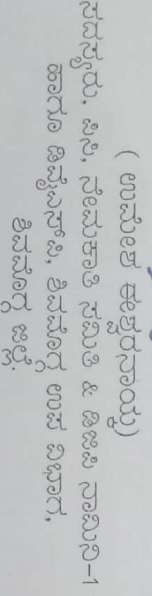 ( ಉಮೇಶ ಈಶ್ವರನಾಯ್ಕ)
ಸದಸ್ಯರು, ಪಿಸಿ, ನೇಮಕಾತಿ ಸಮಿತಿ & ಡಿಜಿಪಿ ನಾಮಿನಿ-1
ಹಾಗೂ ಡಿವೈಎಸ್.ಪಿ, ಶಿವಮೊಗ್ಗ ಉಪ ವಿಭಾಗ,
ಶಿವಮೊಗ್ಗ ಜಿಲ್ಲೆ.